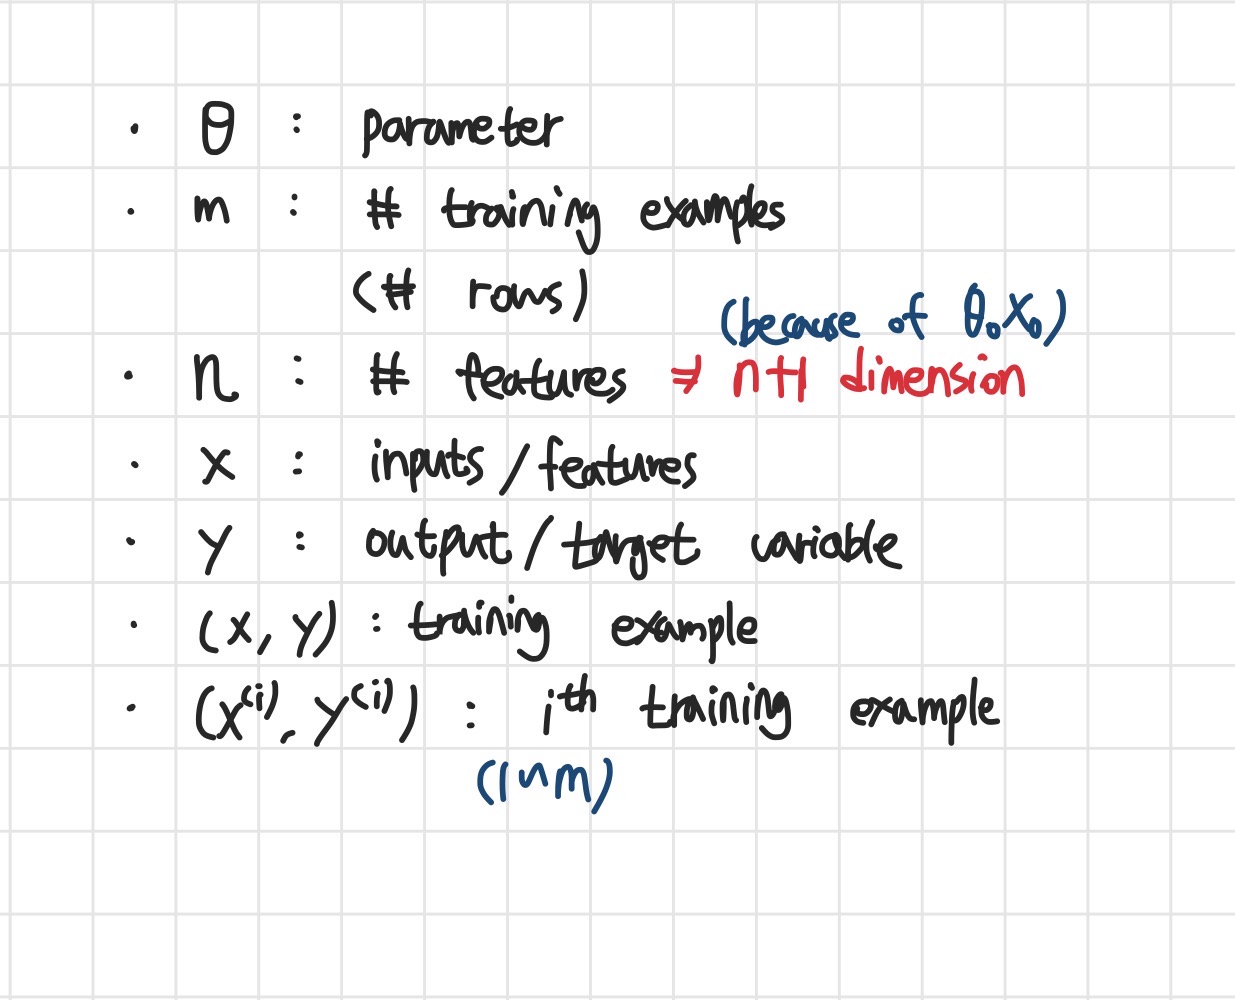 · θ : parameter
· m : # training examples
(# rows)
(because of θ₀X₀)
· n : # features ⇒ n+1 dimension
· x : inputs / features
· y : output / target variable
· (x, y) : training example
· (x⁽ⁱ⁾, y⁽ⁱ⁾) : iᵗʰ training example
(1~m)